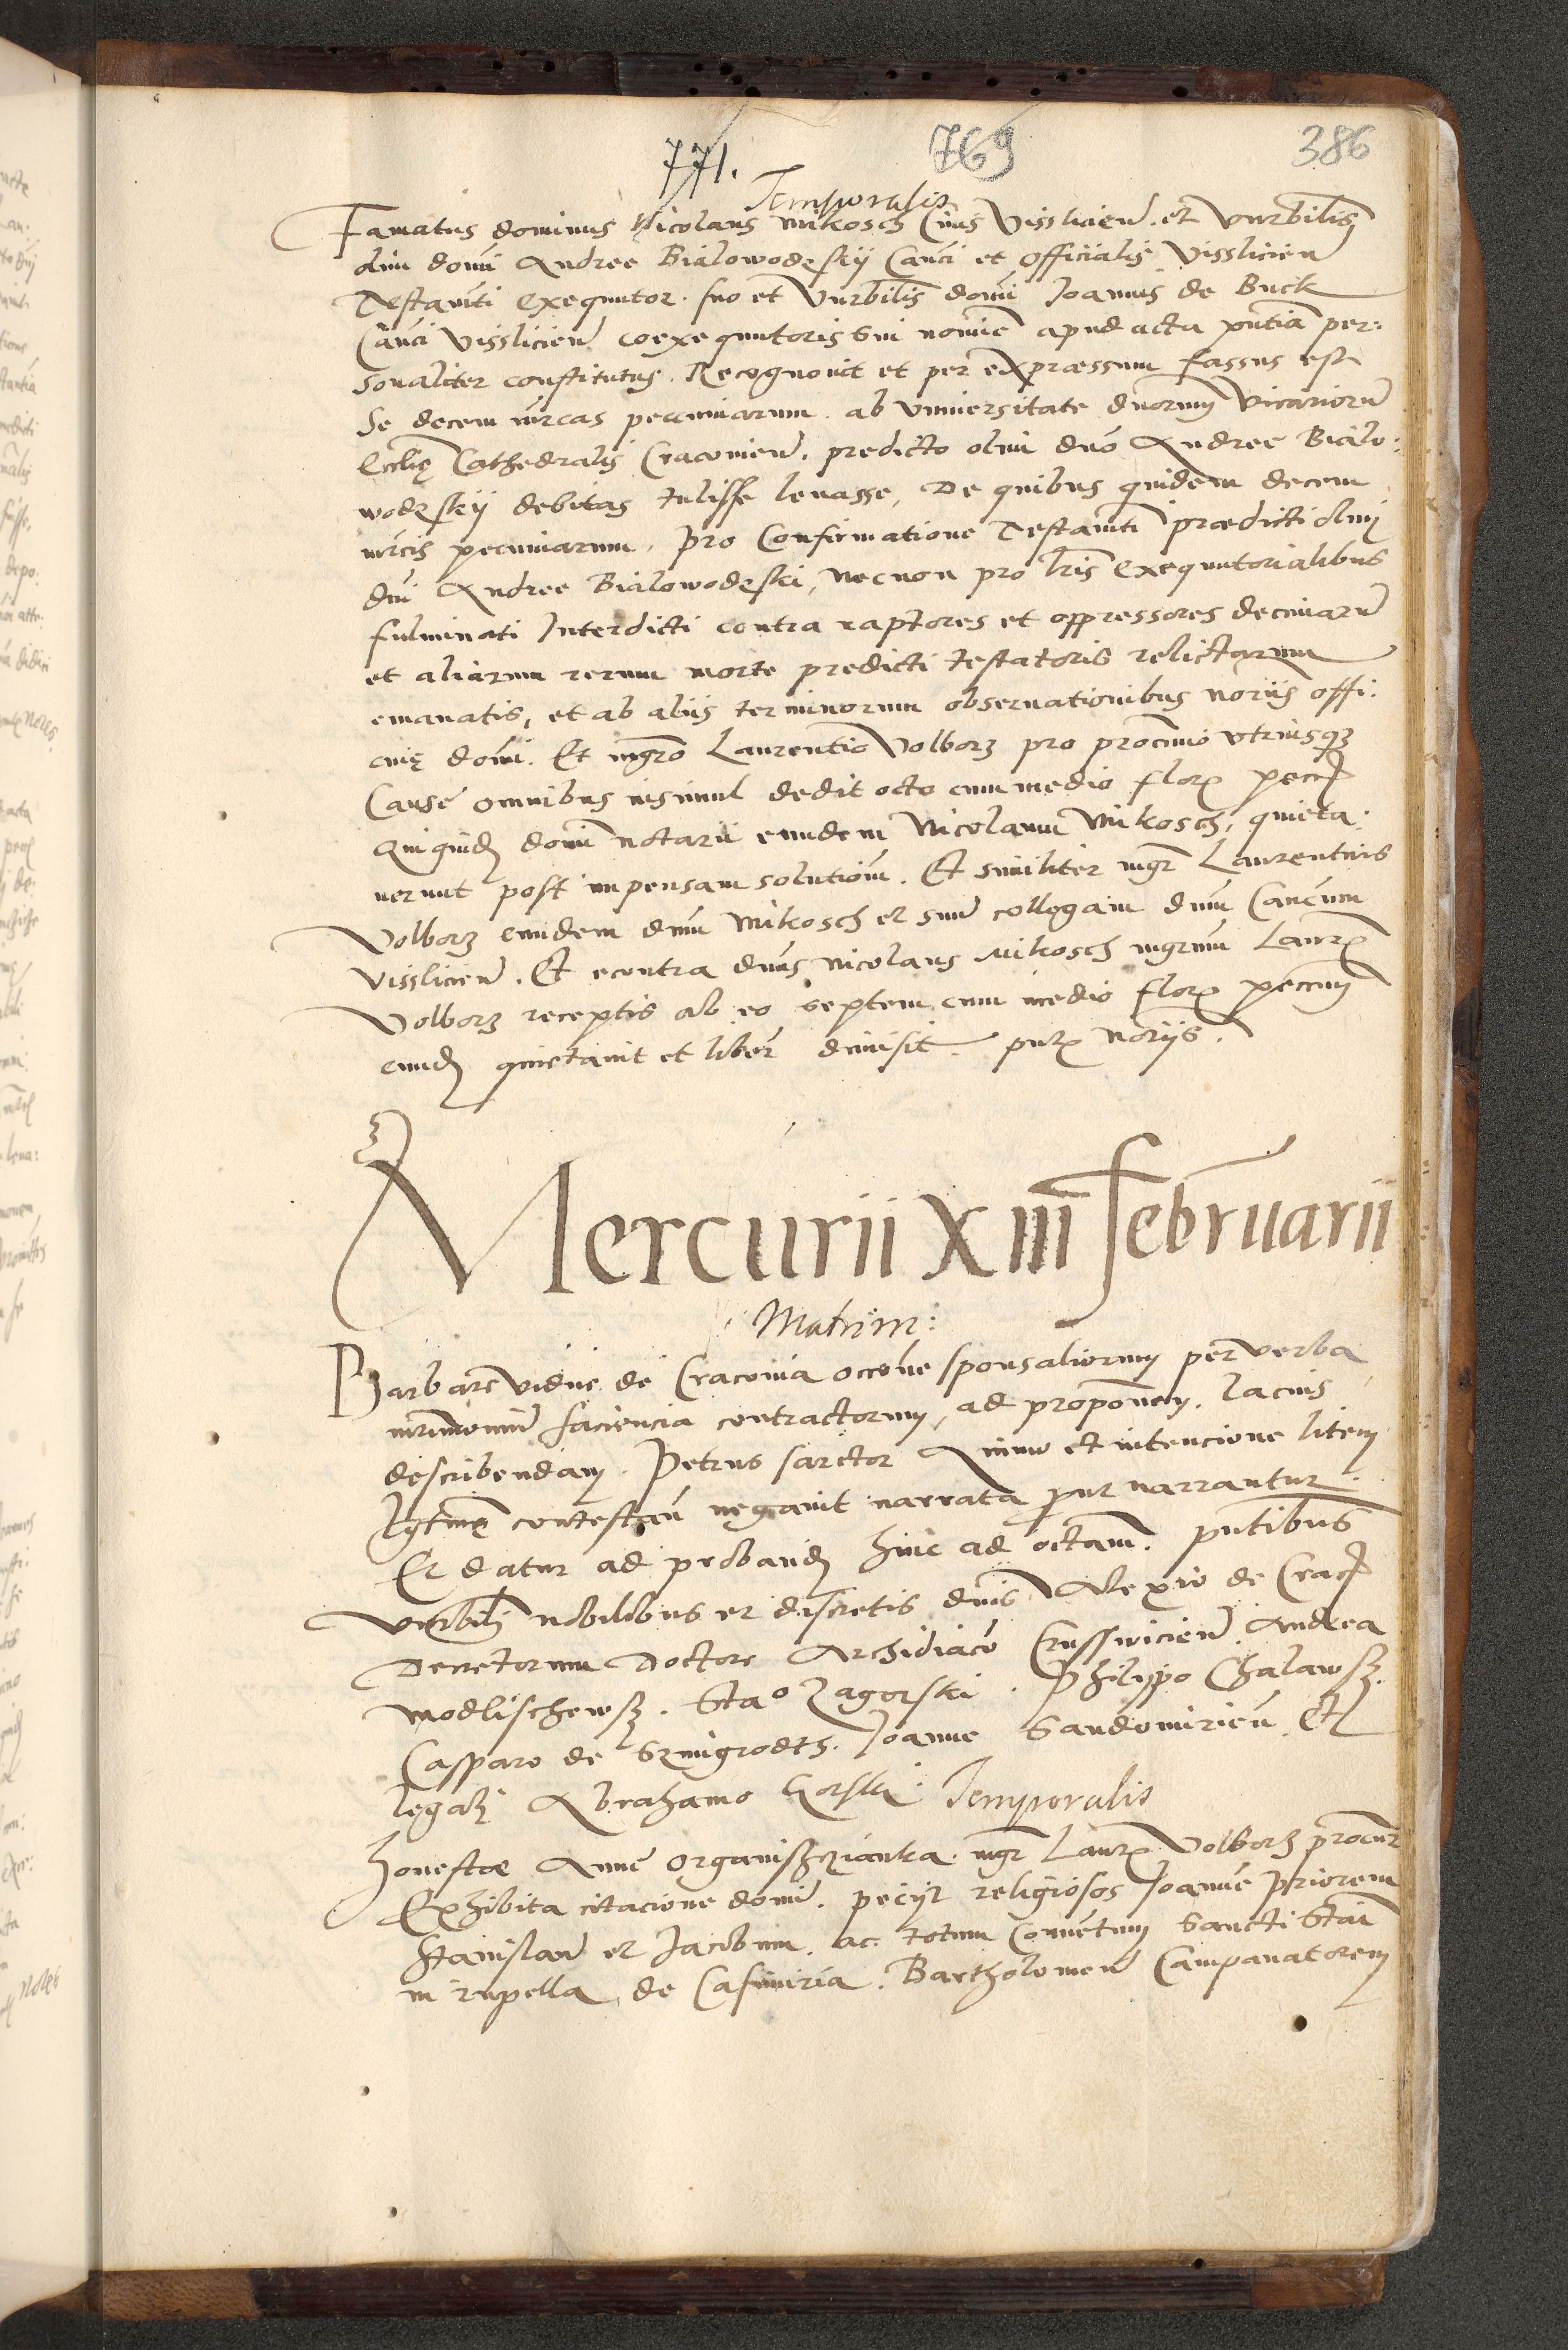 771. 769 386
Temporalis
Famatus dominus Nicolaus Mikosch Civis Visslicien. et Venrbilis
olim domi Andree Bialowodzskij Canci et Officialis Visslicien
Testamti exequutor. suo et Venrbilis domi Joannis de Buck
Canci Visslicien coexequutoris sui nomine apud acta pntia per:
sonaliter constitutus. Recognovit et per expraessum fassus est
Se decem mrcas pecuniarum. ab Universitate dnorum Vicariorum
Ecclię Cathedralis Cracovien. predicto olim dno Andree Bialo:
wodzskij debitas tulisse levasse, De quibus quidem decem
mrcis pecuniarum, pro Confirmatione Testamti praedicti olim
dni Andree Bialowodzski, necnon pro lris exequutorialibus
fulminati Interdicti contra raptores et oppressores decimarum
et aliarum rerum morte predicti testatoris relictarum
emanatis, et ab aliis terminorum observationibus noriis offi:
cii domi. Et mgro Laurentio Volborz pro procimio utriusqz
Cause omnibus insimul dedit octo cum medio flor pecc
Qui quid domi notarii eundem Nicolaum Mikosch, quieta:
verunt post impensam solutiom. Et similiter mgr Laurentius
Volborz eundem dnum Mikosch et suum collegam dnum Cancum
Visslicien. Et econtra dnus Nicolaus Mikosch mgrum Laur
Volborz receptis ab eo septem cum medio flor peccuij
eund quietavit et liber dimisit. pntz noriis.
Mercurii XIII februarii
Matrim:
Barbare vidue de Cracovia occone sponsaliorum per verba
mrimonium faciencia contractorum, ad proponem. lacius
describendam. Petrus sarctor Animo et intencione litem
lgtme contestan negavit narrata prout narrantur.
Et datur ad proband hinc ad octam. pntibus
Venrbili nobilibus et discretis dnis Alexio de Crac
Decretorum Doctore Archidiaco Crusswicien. Andrea
Modlischewsz. Stao Zagorski. Philippo Chalawsz.
Casparo de Szmigrodth. Joanne Sandomirien Et
legali Abrahamo Gorski. Temporalis
Honestae Anne Organiszczianka. mgr Laur Volborz procur
Exhibita citacione domi. peciit religiosos Joannem Priorem
Stanislaum et Jacobum. ac totum Conventum Sancti Stai
in rupella de Casimiria. Bartholomeum Campanatorem